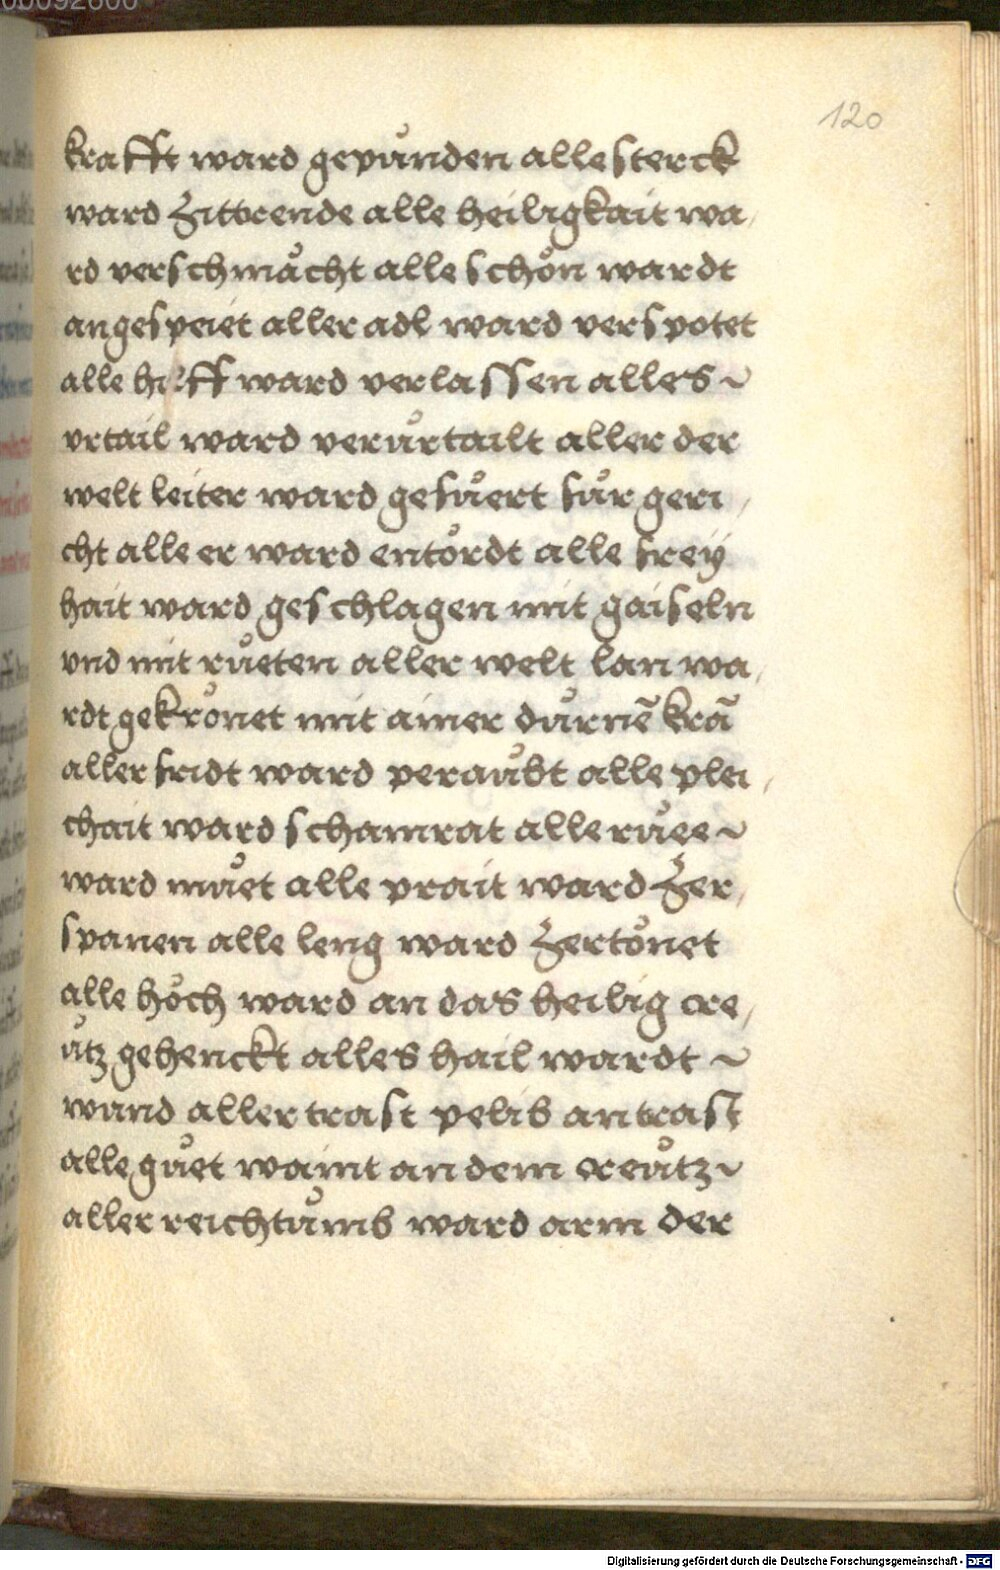 120
krafft ward gepůnden alle sterck
ward Zittrende alle heiligkait wa,
rd verschmåcht alle schőn wardt
angespeiet aller adl ward verspotet
alle hilff ward verlassen alles ~
vrtail ward verůrtailt aller der
welt leiter ward gefůert fůr geri,
cht alle er ward entördt alle frey
hait ward geschlagen mit gaiseln
vnd mit růeten aller welt lan wa,
rdt gekrönet mit ainer důrnē krā
aller fridt ward peraůbt alle plei,
chait ward schamrat alle růee ~
ward műet alle prait ward Zer,
spanen alle leng ward Zertönet
alle höch ward an das heilig cre,
ůtz gehenckt alles hail wardt ~
wund aller trast pelib an trast
alle gůet waint an dem creůtz ~
aller reichtůmb ward arm der
Digitalisierung gefördert durch die Deutsche Forschungsgemeinschaft - DFG